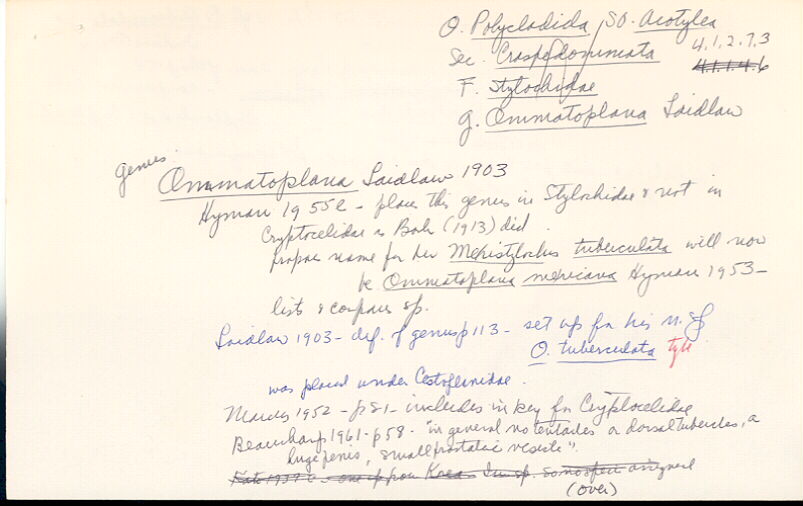 O. Polycladida, SO. Acotylea
Sec. Craspedommata 4.1.2.7.3
4.1.1.4.6
F. Stylochidae
g. Ommatoplana Laidlaw
genus
Ommatoplana Laidlaw 1903
Hyman 1955e - places this genus in Stylochidae & not in
Cryptocelidae as Bock (1913) did.
proper name for her Meristylochus tuberculata will now
be Ommatoplana mexicana Hyman 1953 -
lists & compares sp.
Laidlaw 1903 - def. of genus p 113 - set up for his n. sp
O. tuberculata type
was placed under Cestoplanidae.
Marcus 1952 - p 81 - includes in key for Cryptocelidae
Beauchamp 1961 - p 58 - "in general no tentacles or dorsal tubercles, a
huge penis, small prostatic vesicle".
Kato 1937 - one sp from Korea sp. assigned
(over)